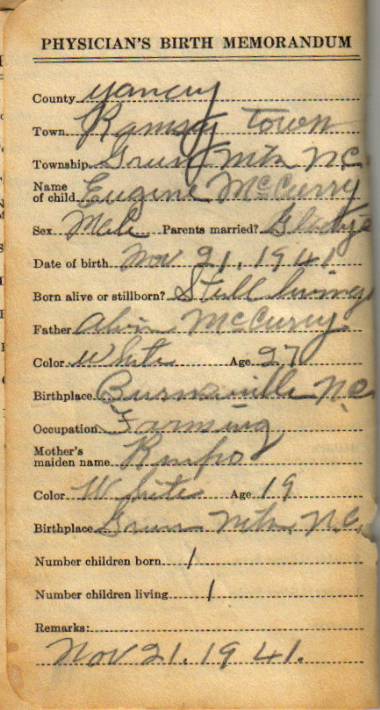 PHYSICIAN'S BIRTH MEMORANDUM
County Yancey
Town Ramsey town
Township Green Mtn N.C.
Name of child Eugene McCurry
Sex Male Parents married? Gladys
Date of birth Nov 21, 1941
Born alive or stillborn? Still living
Father Alvin McCurry
Color White Age 27
Birthplace Burnsville N.C.
Occupation Farming
Mother's maiden name
Color White Age 19
Birthplace Green Mtn. N.C.
Number children born 1
Number children living 1
Remarks:
Nov 21. 1941.